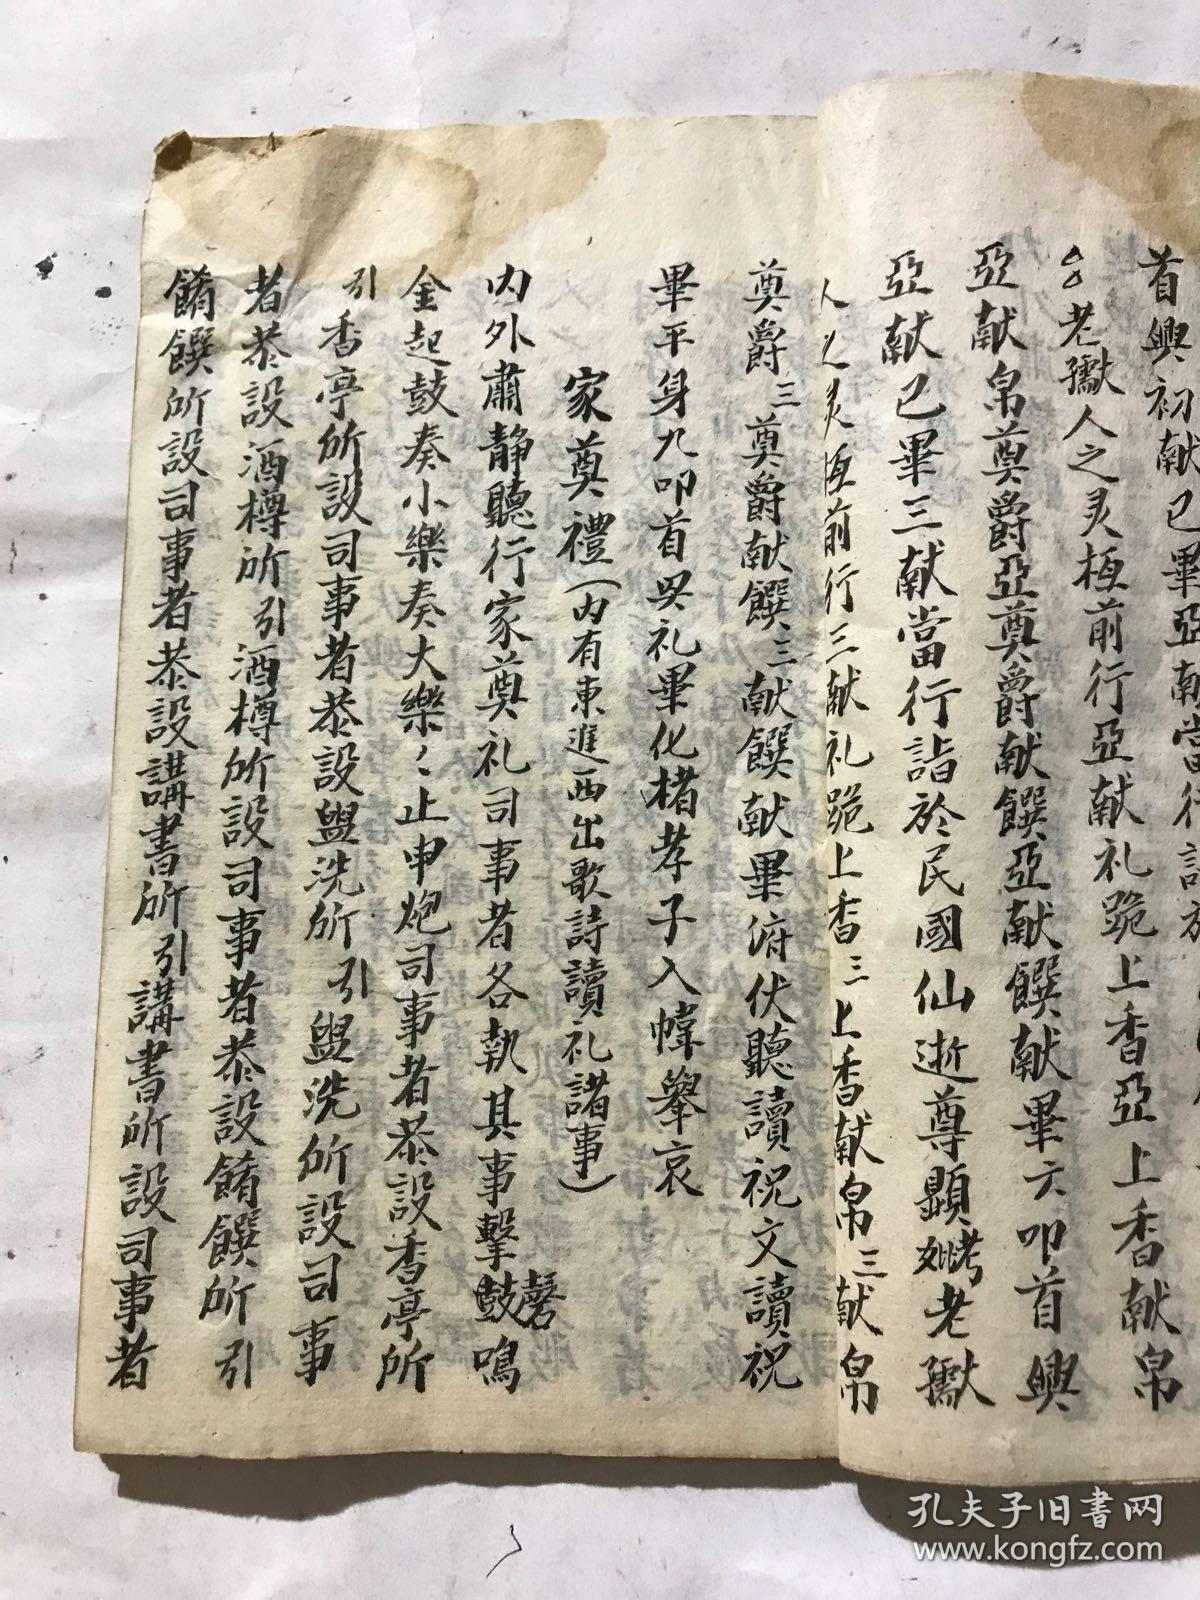 首興初献已畢亞献當行詣於
老孺人之灵柩前行亞献礼跪上香亞上香献帛
亞献帛奠爵亞奠爵献饌亞献饌献畢六叩首興
亞献已畢三献當行詣於民國仙逝尊顯妣考老
人之灵柩前行三献礼跪上香三上香献帛三献帛
奠爵三奠爵献饌三献饌献畢俯伏聽讀祝文讀祝
畢平身九叩首興礼畢化楮孝子入幃舉哀
家奠禮（内有東進西出歌詩讀礼諸事）
内外肅静聽行家奠礼司事者各執其事擊鼓磬鳴
金起鼓奏小樂奏大樂〻止申炮司事者恭設香亭所
引香亭所設司事者恭設盥洗所引盥洗所設司事
者恭設酒樽所引酒樽所設司事者恭設餚饌所引
餚饌所設司事者恭設講書所引講書所設司事者
孔夫子旧书网
www.kongfz.com